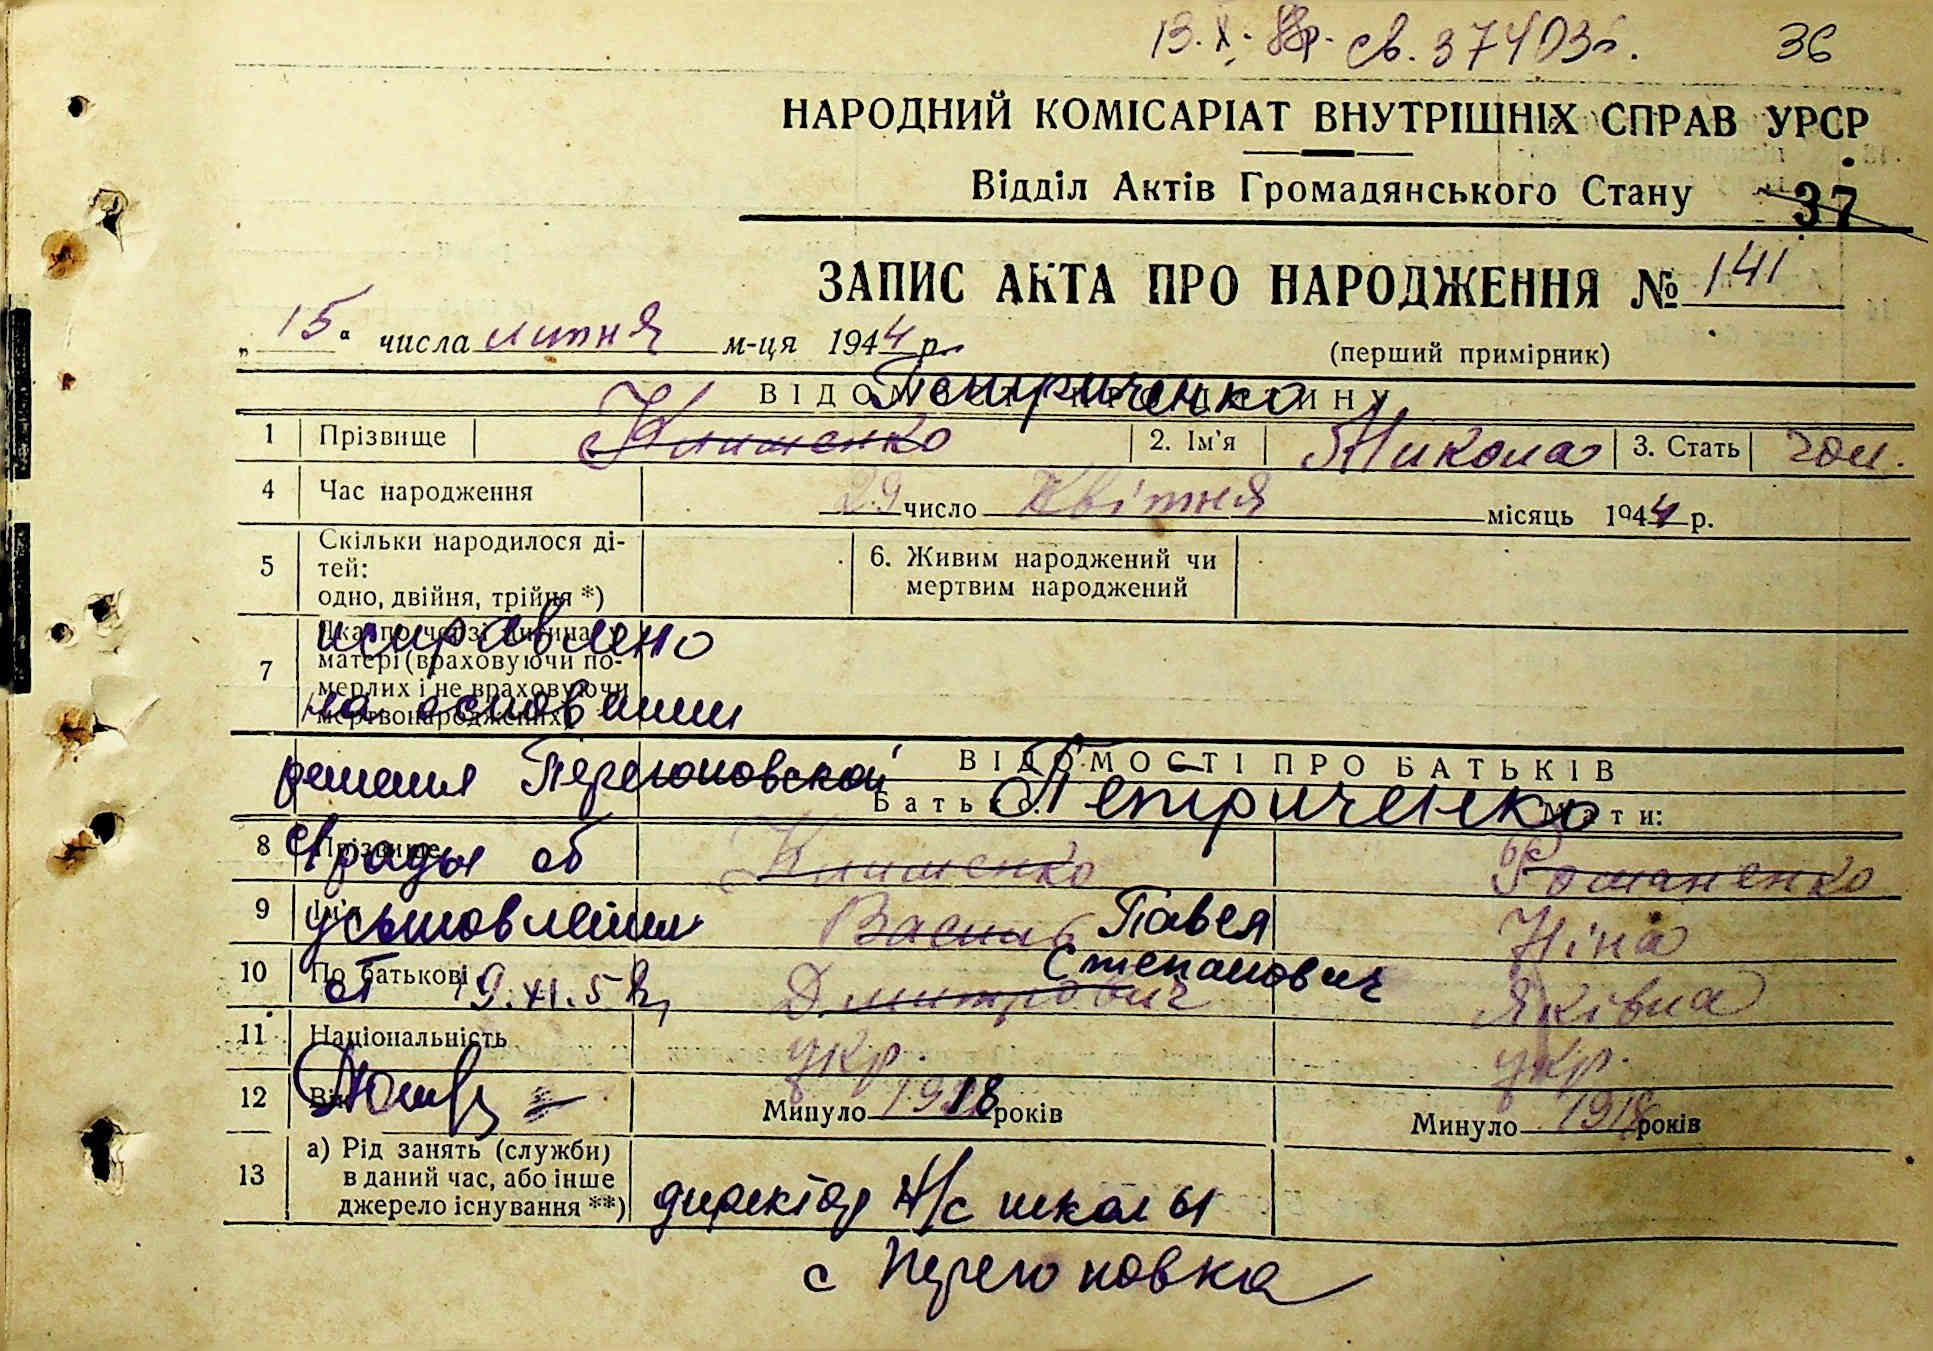 13. X. св. 374035. 36
НАРОДНИЙ КОМІСАРІАТ ВНУТРІШНІХ СПРАВ УРСР
Відділ Актів Громадянського Стану 37
ЗАПИС АКТА ПРО НАРОДЖЕННЯ № 141
„15" числа липня м-ця 1944 р.
(перший примірник)
Петриченко
1 Прізвище Клименко 2. Ім'я Микола 3. Стать чол.
4 Час народження 29 число Квітня місяць 1944 р.
5 Скільки народилося ді-
тей:
одно, двійня, трійня *)
6. Живим народжений чи
мертвим народжений
7 Яка по черзі дитина у
матері (враховуючи по-
мерлих і не враховуючи
мертвонароджених)
исправлено
на основании
решения Перегоновской
с/рады об
усыновлении
от 19.XI.5
ВІДОМОСТІ ПРО БАТЬКІВ
Батько: Мати:
Петриченко
8 Прізвище Клименко Романенко
9 Ім'я Василь Павел Ніна
10 По батькові Дмитрович Степанович Яківна
11 Національність укр. укр.
12 Вік Минуло 1918 років Минуло 1918 років
13 а) Рід занять (служби)
в даний час, або інше
джерело існування **)
директор н/с школы
с Перегоновка